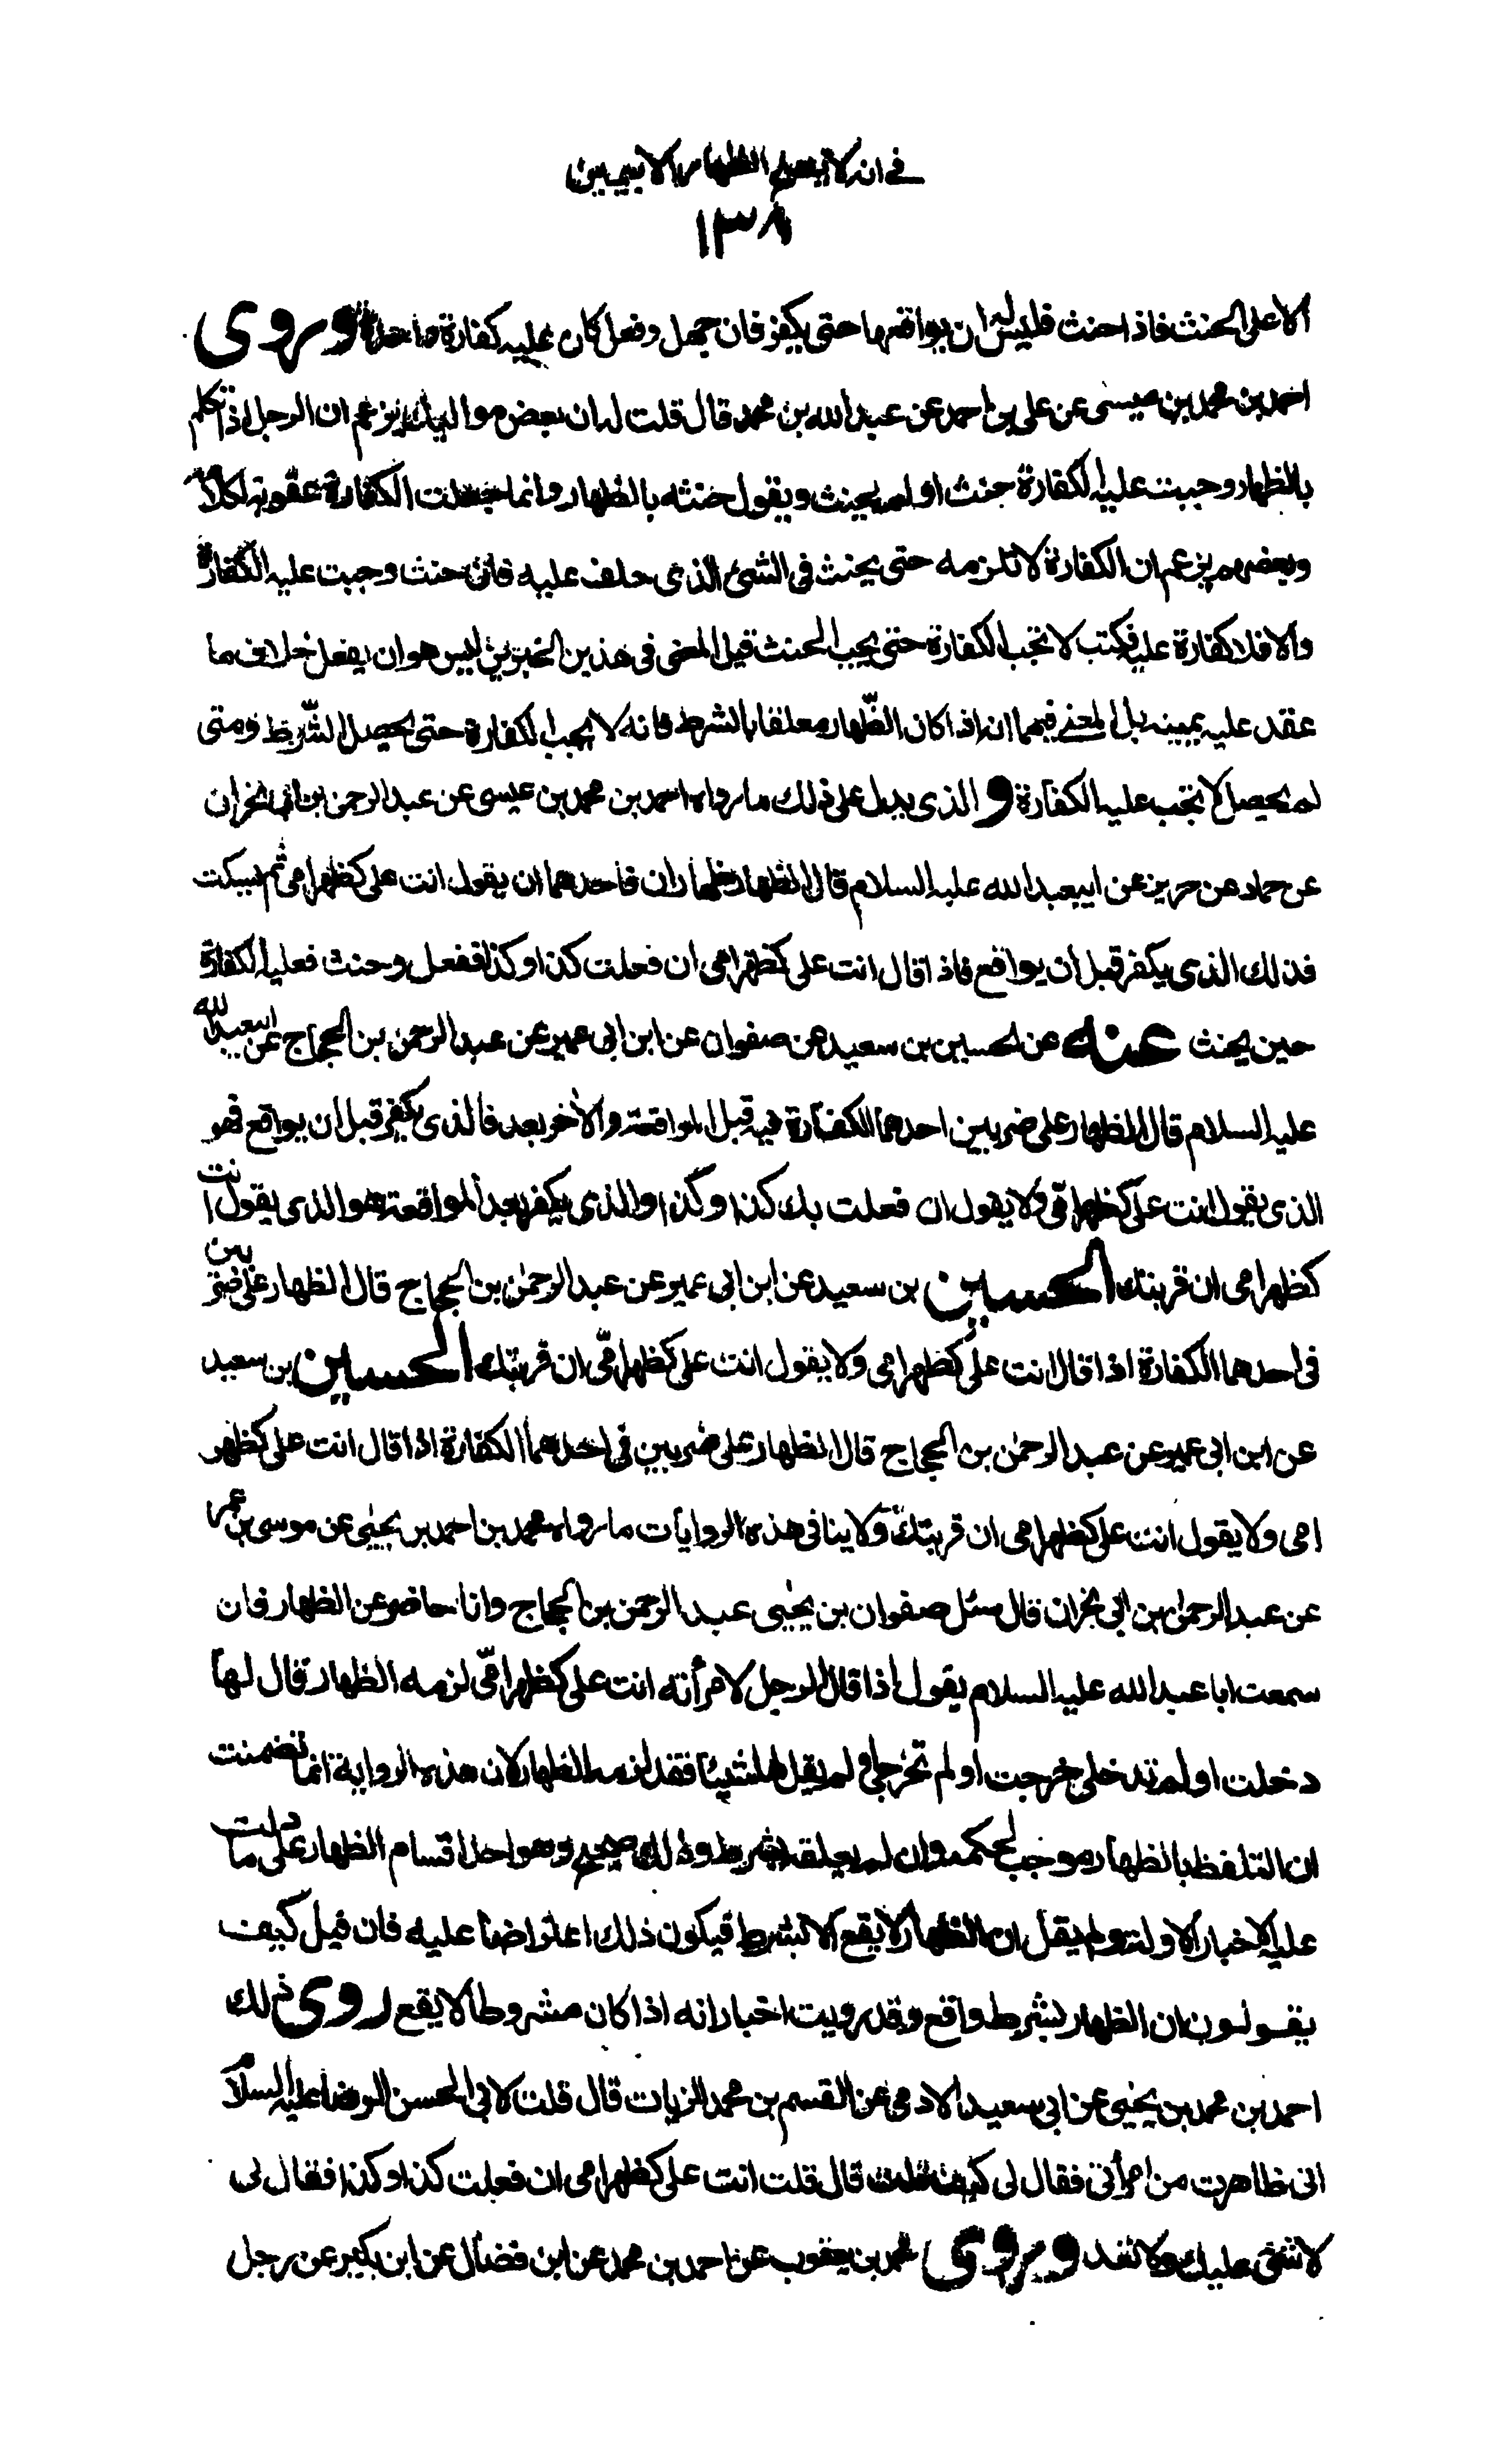 في انه لا يصح الظهار الا بيمين
١٣٨
الا على الحنث فاذا حنث فليس له ان يواقعها حتى يكفر فان جهل وفعل كان عليه كفارة واحدة وروى
احمد بن محمد بن عيسى عن علي بن احمد عن عبد الله بن محمد قال قلت له ان بعض مواليك يزعم ان الرجل اذا تكلم
بالظهار وجبت عليه الكفارة حنث او لم يحنث ويقول حنثه بالظهار وانما جعلت الكفارة عقوبة لكلامه
وبعضهم يزعم ان الكفارة لا تلزمه حتى يحنث في الشئ الذى حلف عليه فان حنث وجبت عليه الكفارة
والا فلا كفارة عليه فكتب لا تجب الكفارة حتى يجب الحنث قيل المعنى فى هذين الخبرين ليس هو ان يفعل خلاف ما
عقد عليه يمينه بل المعنى فيهما انه اذا كان الظهار معلقا بالشرط فانه لا يجب الكفارة حتى يحصل الشرط ومتى
لم يحصل لا تجب عليه الكفارة و الذى يدل على ذلك ما رواه احمد بن محمد بن عيسى عن عبد الرحمن بن ابى نجران
عن حماد عن حريز عن ابيعبد الله عليه السلام قال الظهار ظهاران فاحدهما ان يقول انت على كظهر امى ثم يسكت
فذلك الذى يكفر قبل ان يواقع فاذا قال انت على كظهر امى ان فعلت كذا وكذا ففعل وحنث فعليه الكفارة
حين يحنث عنه عن الحسين بن سعيد عن صفوان عن ابن ابى عمير عن عبد الرحمن بن الحجاج عن ابيعبد الله
عليه السلام قال الظهار على ضربين احدهما الكفارة فيه قبل المواقعة والاخر بعد فالذى يكفر قبل ان يواقع فهو
الذى يقول انت على كظهر امى ولا يقول ان فعلت بك كذا وكذا والذى يكفر بعد المواقعة هو الذى يقول انت
كظهر امى ان قربتك الحسين بن سعيد عن ابن ابى عمير عن عبد الرحمن بن الحجاج قال الظهار على ضربين
فى احدهما الكفارة اذا قال انت على كظهر امى ولا يقول انت على كظهر امّى ان قربتك الحسين بن سعيد
عن ابن ابى عمير عن عبد الرحمن بن الحجاج قال الظهار على ضربين فى احدهما الكفارة اذا قال انت على كظهر
امى ولا يقول انت على كظهر امى ان قربتك ولا ينافى هذه الروايات ما رواه محمد بن احمد بن يحيى عن موسى بن عمر
عن عبد الرحمن بن ابى نجران قال سئل صفوان بن يحيى عبد الرحمن بن الحجاج وانا حاضر عن الظهار فان
سمعت ابا عبد الله عليه السلام يقول اذا قال الرجل لامرأته انت على كظهر امّى لزمه الظهار قال لها
دخلت او لم تدخلى خرجت او لم تخرجى او لم يقل لها شيئا فقد لزمه الظهار لان هذه الرواية انما تضمنت
ان التلفظ بالظهار موجب لحكمه وان لم يعلقه بشرط وذلك صحيح وهو احد اقسام الظهار على ما دلت
عليه الاخبار الاولة ولم يقل ان الظهار لا يقع الا بشرط فيكون ذلك اعتراضا عليه فان قيل كيف
يقولون ان الظهار بشرط واقع وقد رويت اخبار انه اذا كان مشروطا لا يقع روى ذلك
احمد بن محمد بن يحيى عن ابى سعيد الادمى عن القسم بن محمد الزيات قال قلت لابى الحسن الرضا عليه السلام
انى ظاهرت من امرأتى فقال لى كيف قلت قال قلت انت على كظهر امى ان فعلت كذا وكذا فقال لى
لا شئ عليك ولا تعد وروى محمد بن يعقوب عن احمد بن محمد عن ابن فضال عن ابن بكير عن رجل